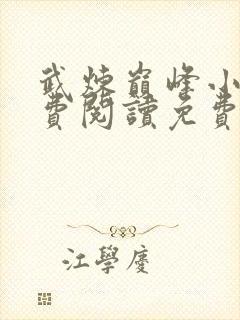 武煉巔峰小
費閱讀免費
江學慶